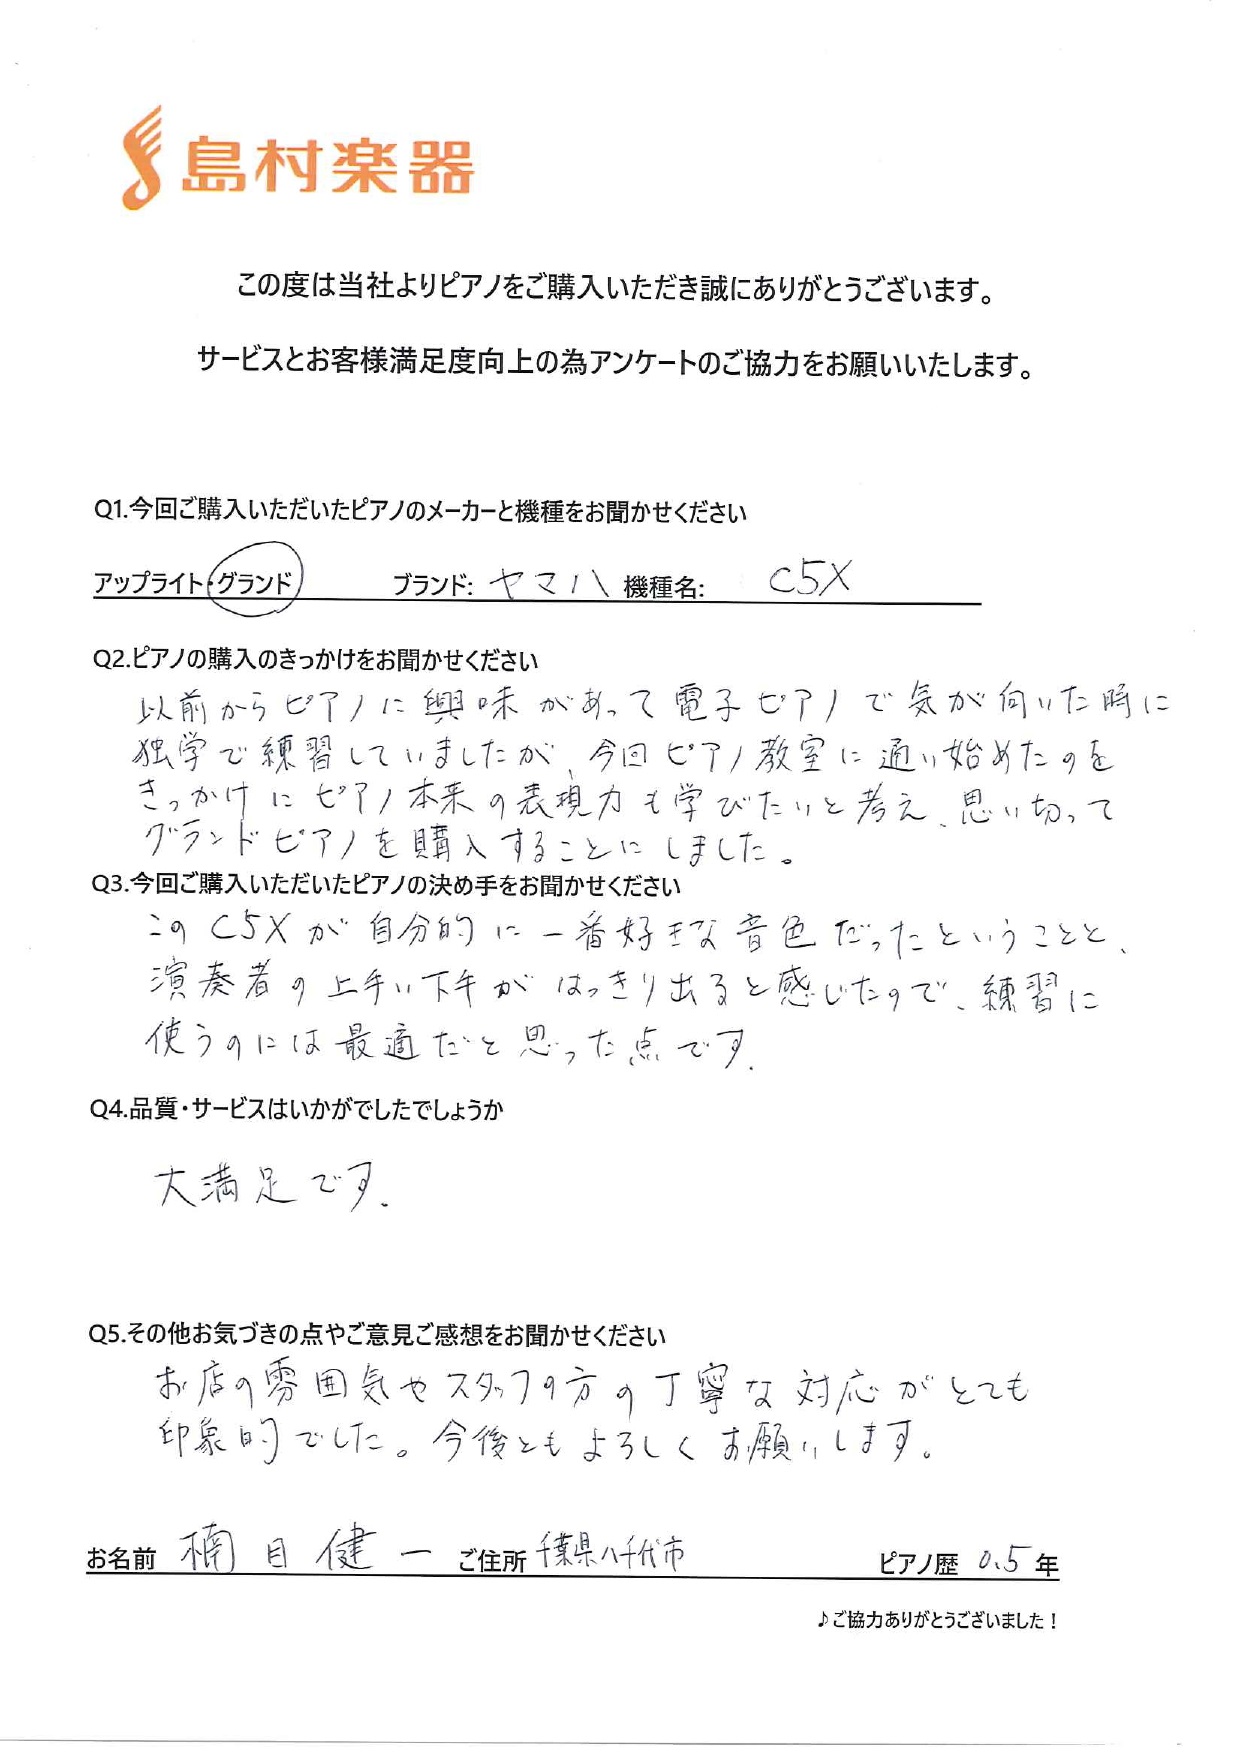 島村楽器
この度は当社よりピアノをご購入いただき誠にありがとうございます。
サービスとお客様満足度向上の為アンケートのご協力をお願いいたします。
Q1.今回ご購入いただいたピアノのメーカーと機種をお聞かせください
アップライト・グランド ブランド: ヤマハ 機種名: C5X
Q2.ピアノの購入のきっかけをお聞かせください
以前からピアノに興味があって電子ピアノで気が向いた時に
独学で練習していましたが、今回ピアノ教室に通い始めたのを
きっかけにピアノ本来の表現力も学びたいと考え、思い切って
グランドピアノを購入することにしました。
Q3.今回ご購入いただいたピアノの決め手をお聞かせください
このC5Xが自分的に一番好きな音色だったということと、
演奏者の上手い下手がはっきり出ると感じたので、練習に
使うのには最適だと思った点です。
Q4.品質・サービスはいかがでしたでしょうか
大満足です。
Q5.その他お気づきの点やご意見ご感想をお聞かせください
お店の雰囲気やスタッフの方の丁寧な対応がとても
印象的でした。今後ともよろしくお願いします。
お名前 楠目健一 ご住所 千葉県八千代市 ピアノ歴 0.5 年
♪ご協力ありがとうございました！